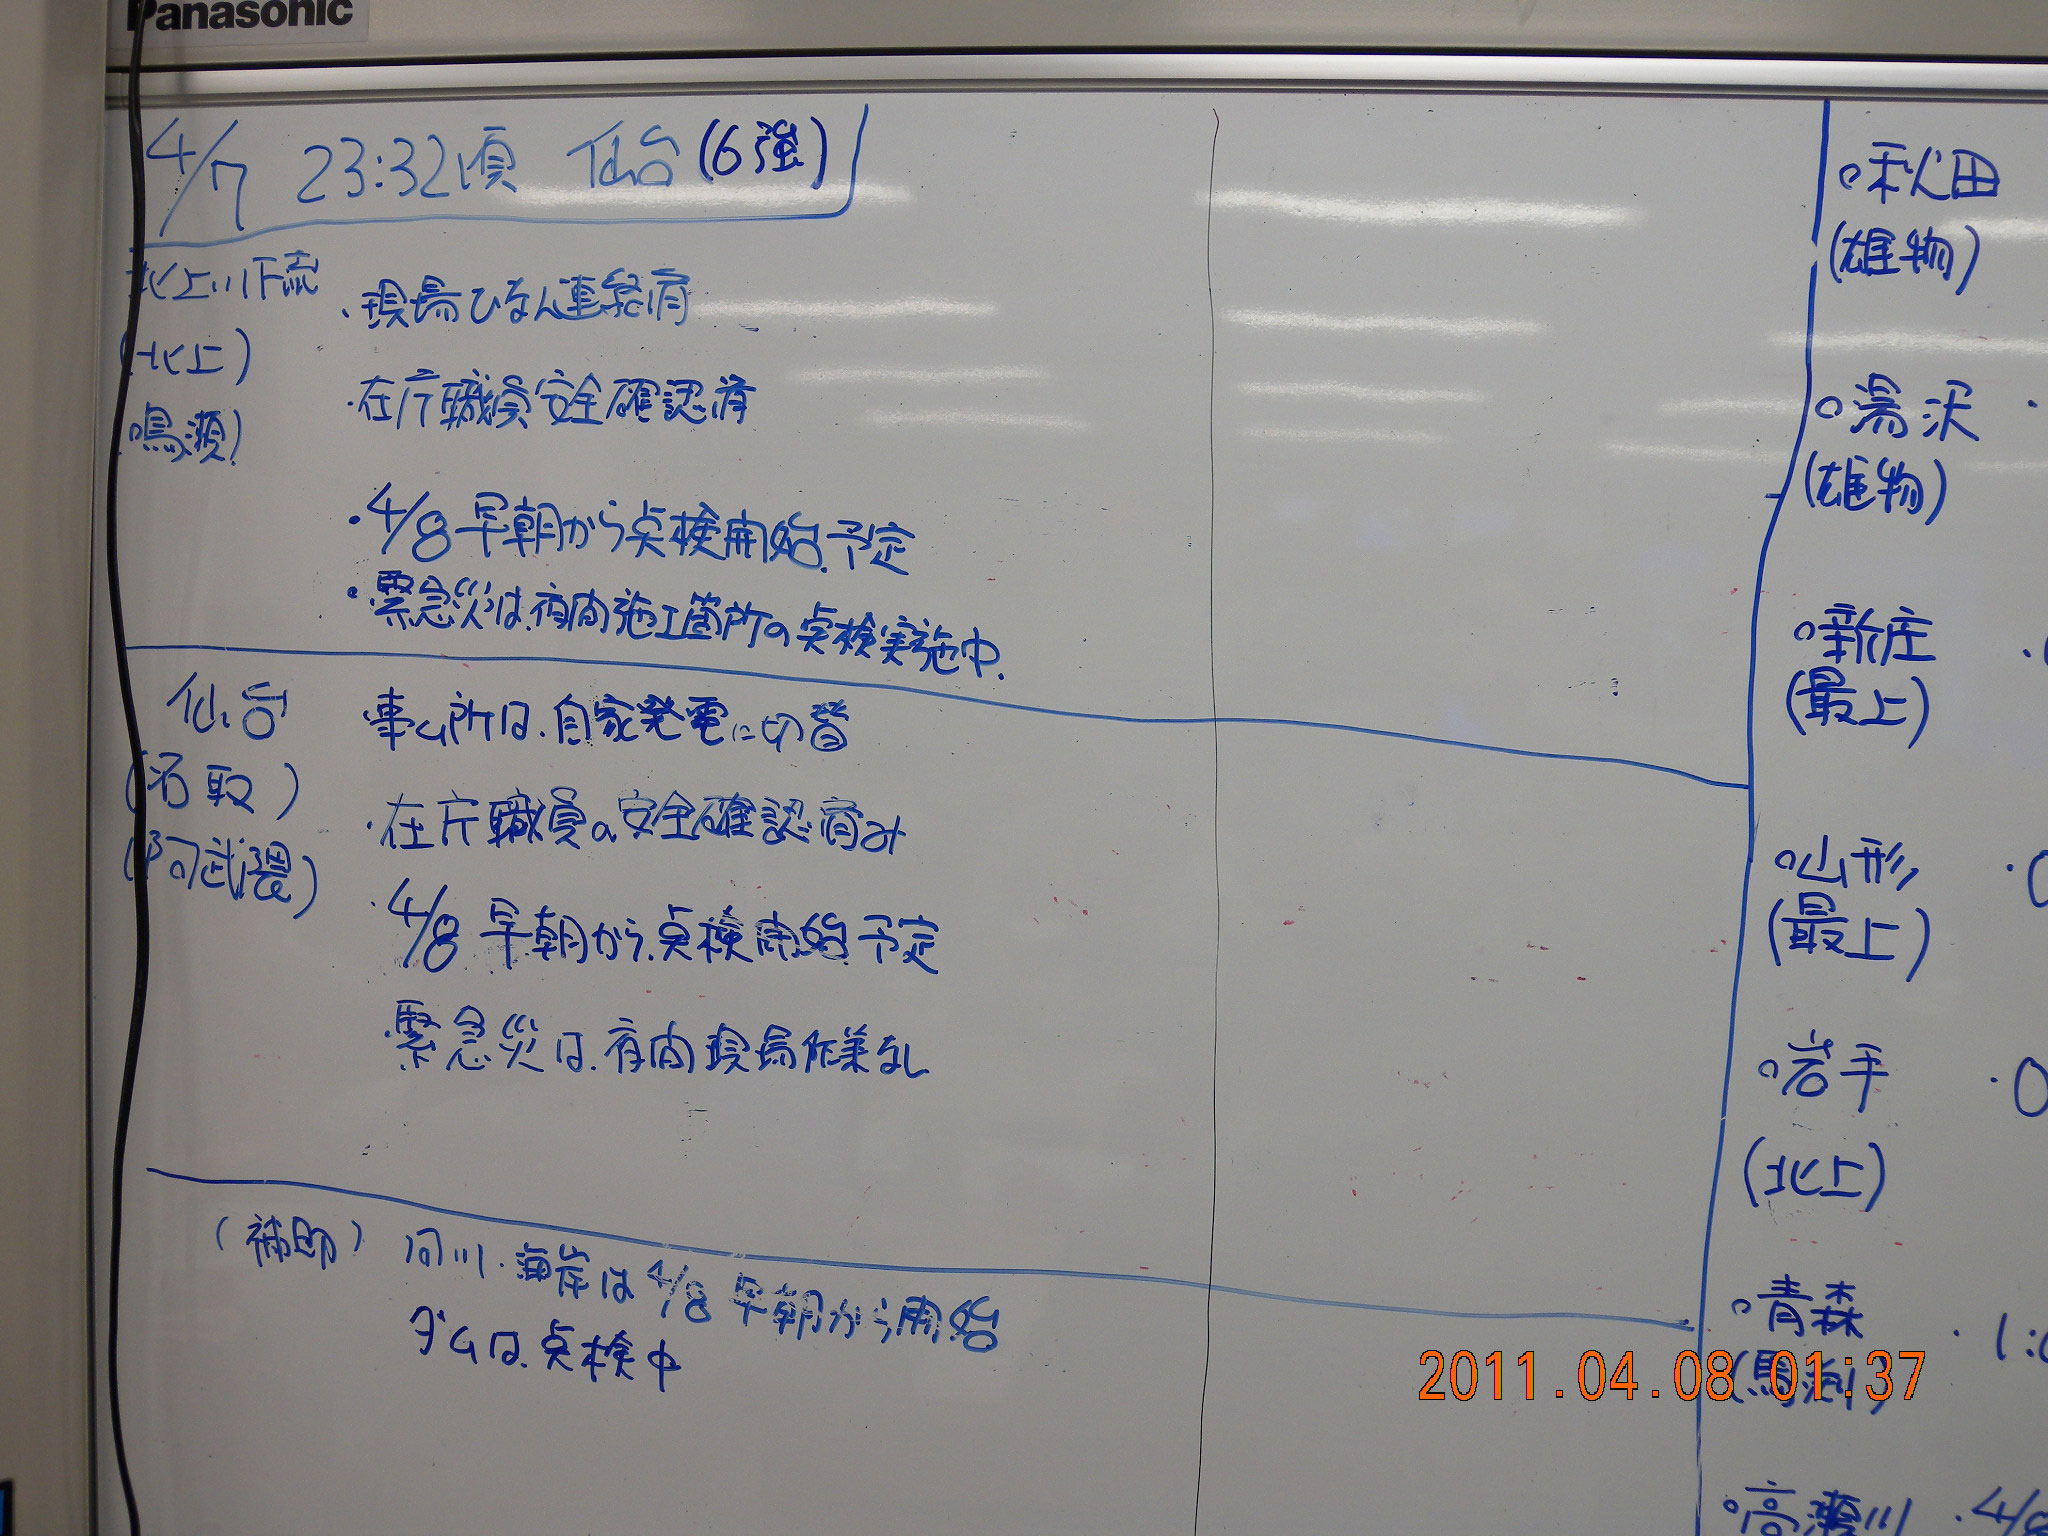 Panasonic
4/7 23:32頃 仙台(6強)
北上川下流
(北上)
鳴瀬)
・現場ひなん連絡済
・在庁職員安全確認済
・4/8 早朝から点検開始予定
・緊急災は、夜間施工箇所の点検実施中.
仙台
(名取)
(阿武隈)
・事ム所は、自家発電に切替
・在庁職員の安全確認済み
・4/8 早朝から、点検開始予定
・緊急災は、夜間現場作業なし
(補助) 河川・海岸は4/8 早朝から開始
ダムは、点検中
○秋田
(雄物)
○湯沢 ・
(雄物)
○新庄 ・
(最上)
○山形 ・0
(最上)
○岩手 ・0
(北上)
○青森 ・1:
(馬淵)
○高瀬川 ・4/8
2011.04.08 01:37